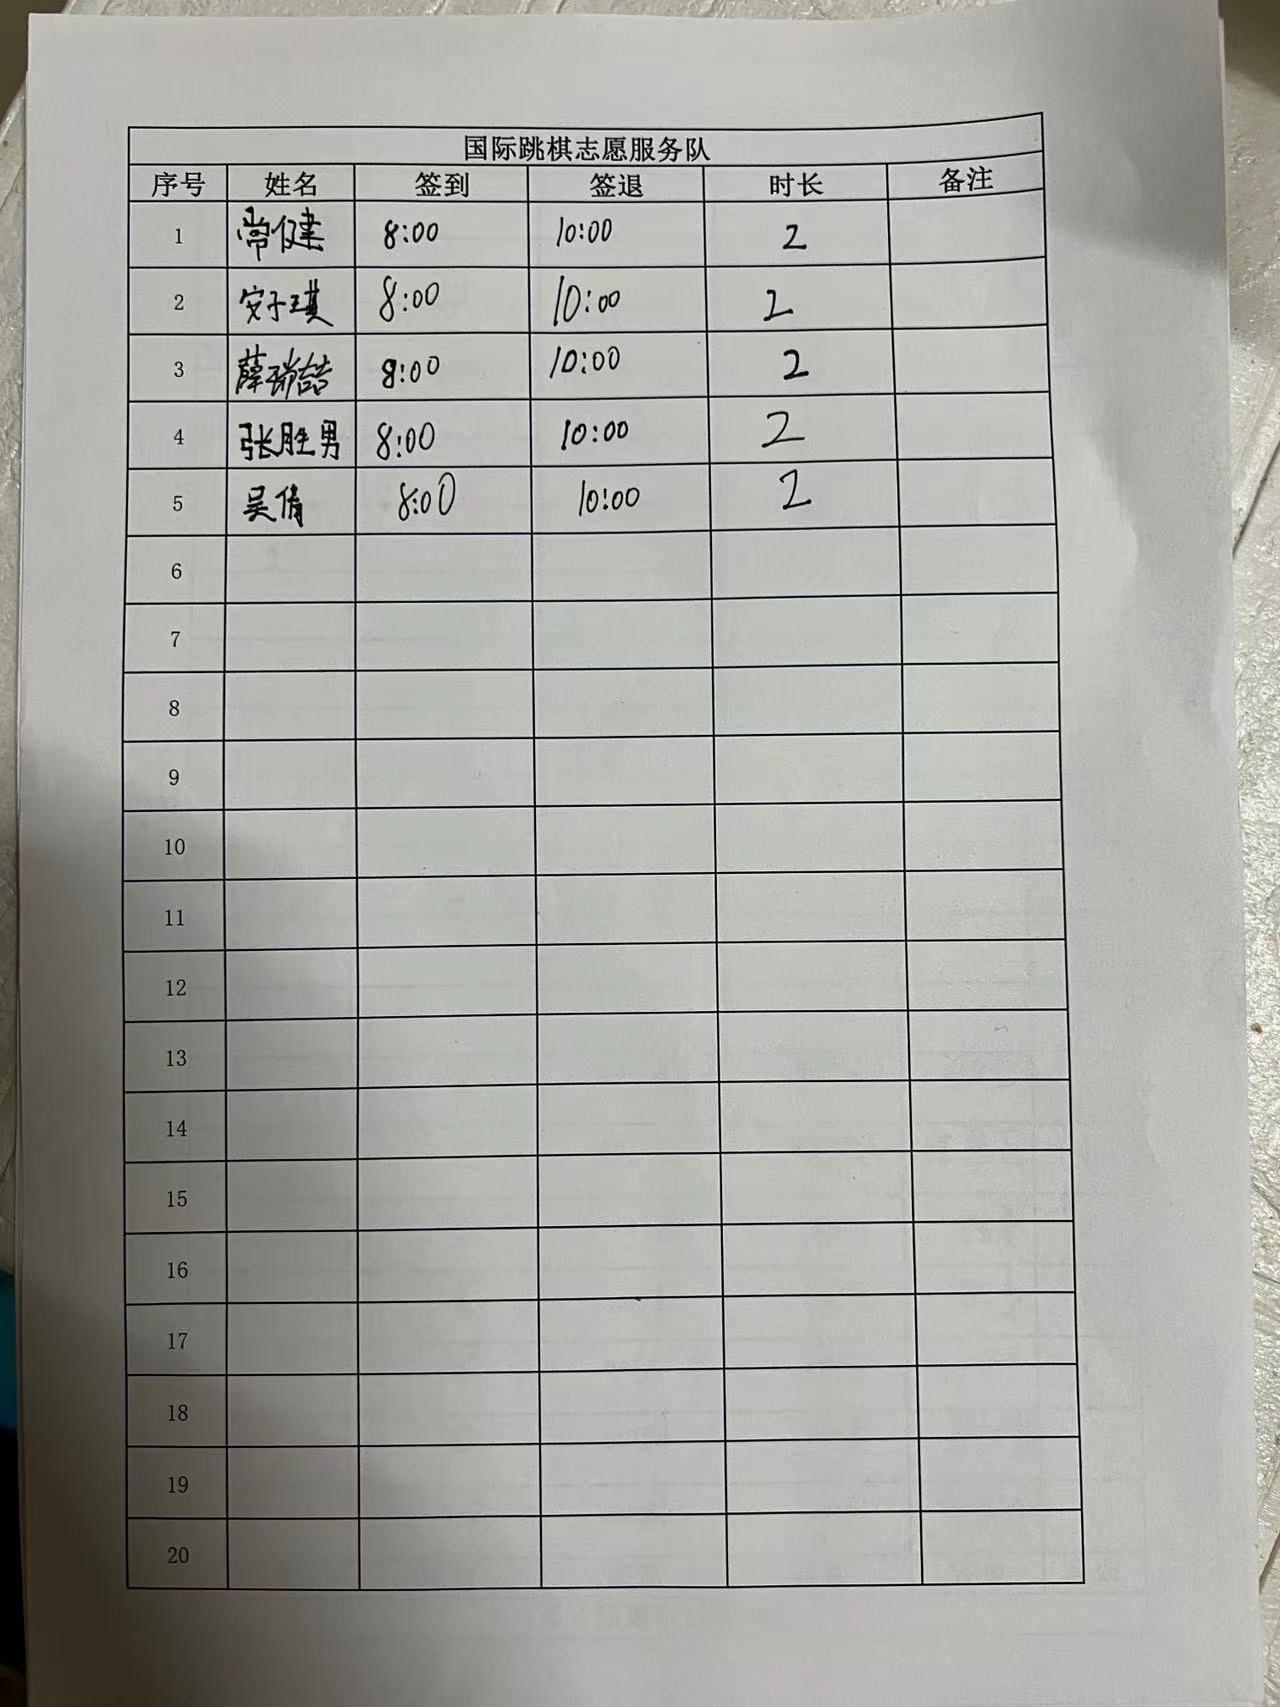 国际跳棋志愿服务队
序号 姓名 签到 签退 时长 备注
1 常健 8:00 10:00 2
2 安子琪 8:00 10:00 2
3 薛瑞喆 8:00 10:00 2
4 张胜男 8:00 10:00 2
5 吴倩 8:00 10:00 2
6
7
8
9
10
11
12
13
14
15
16
17
18
19
20